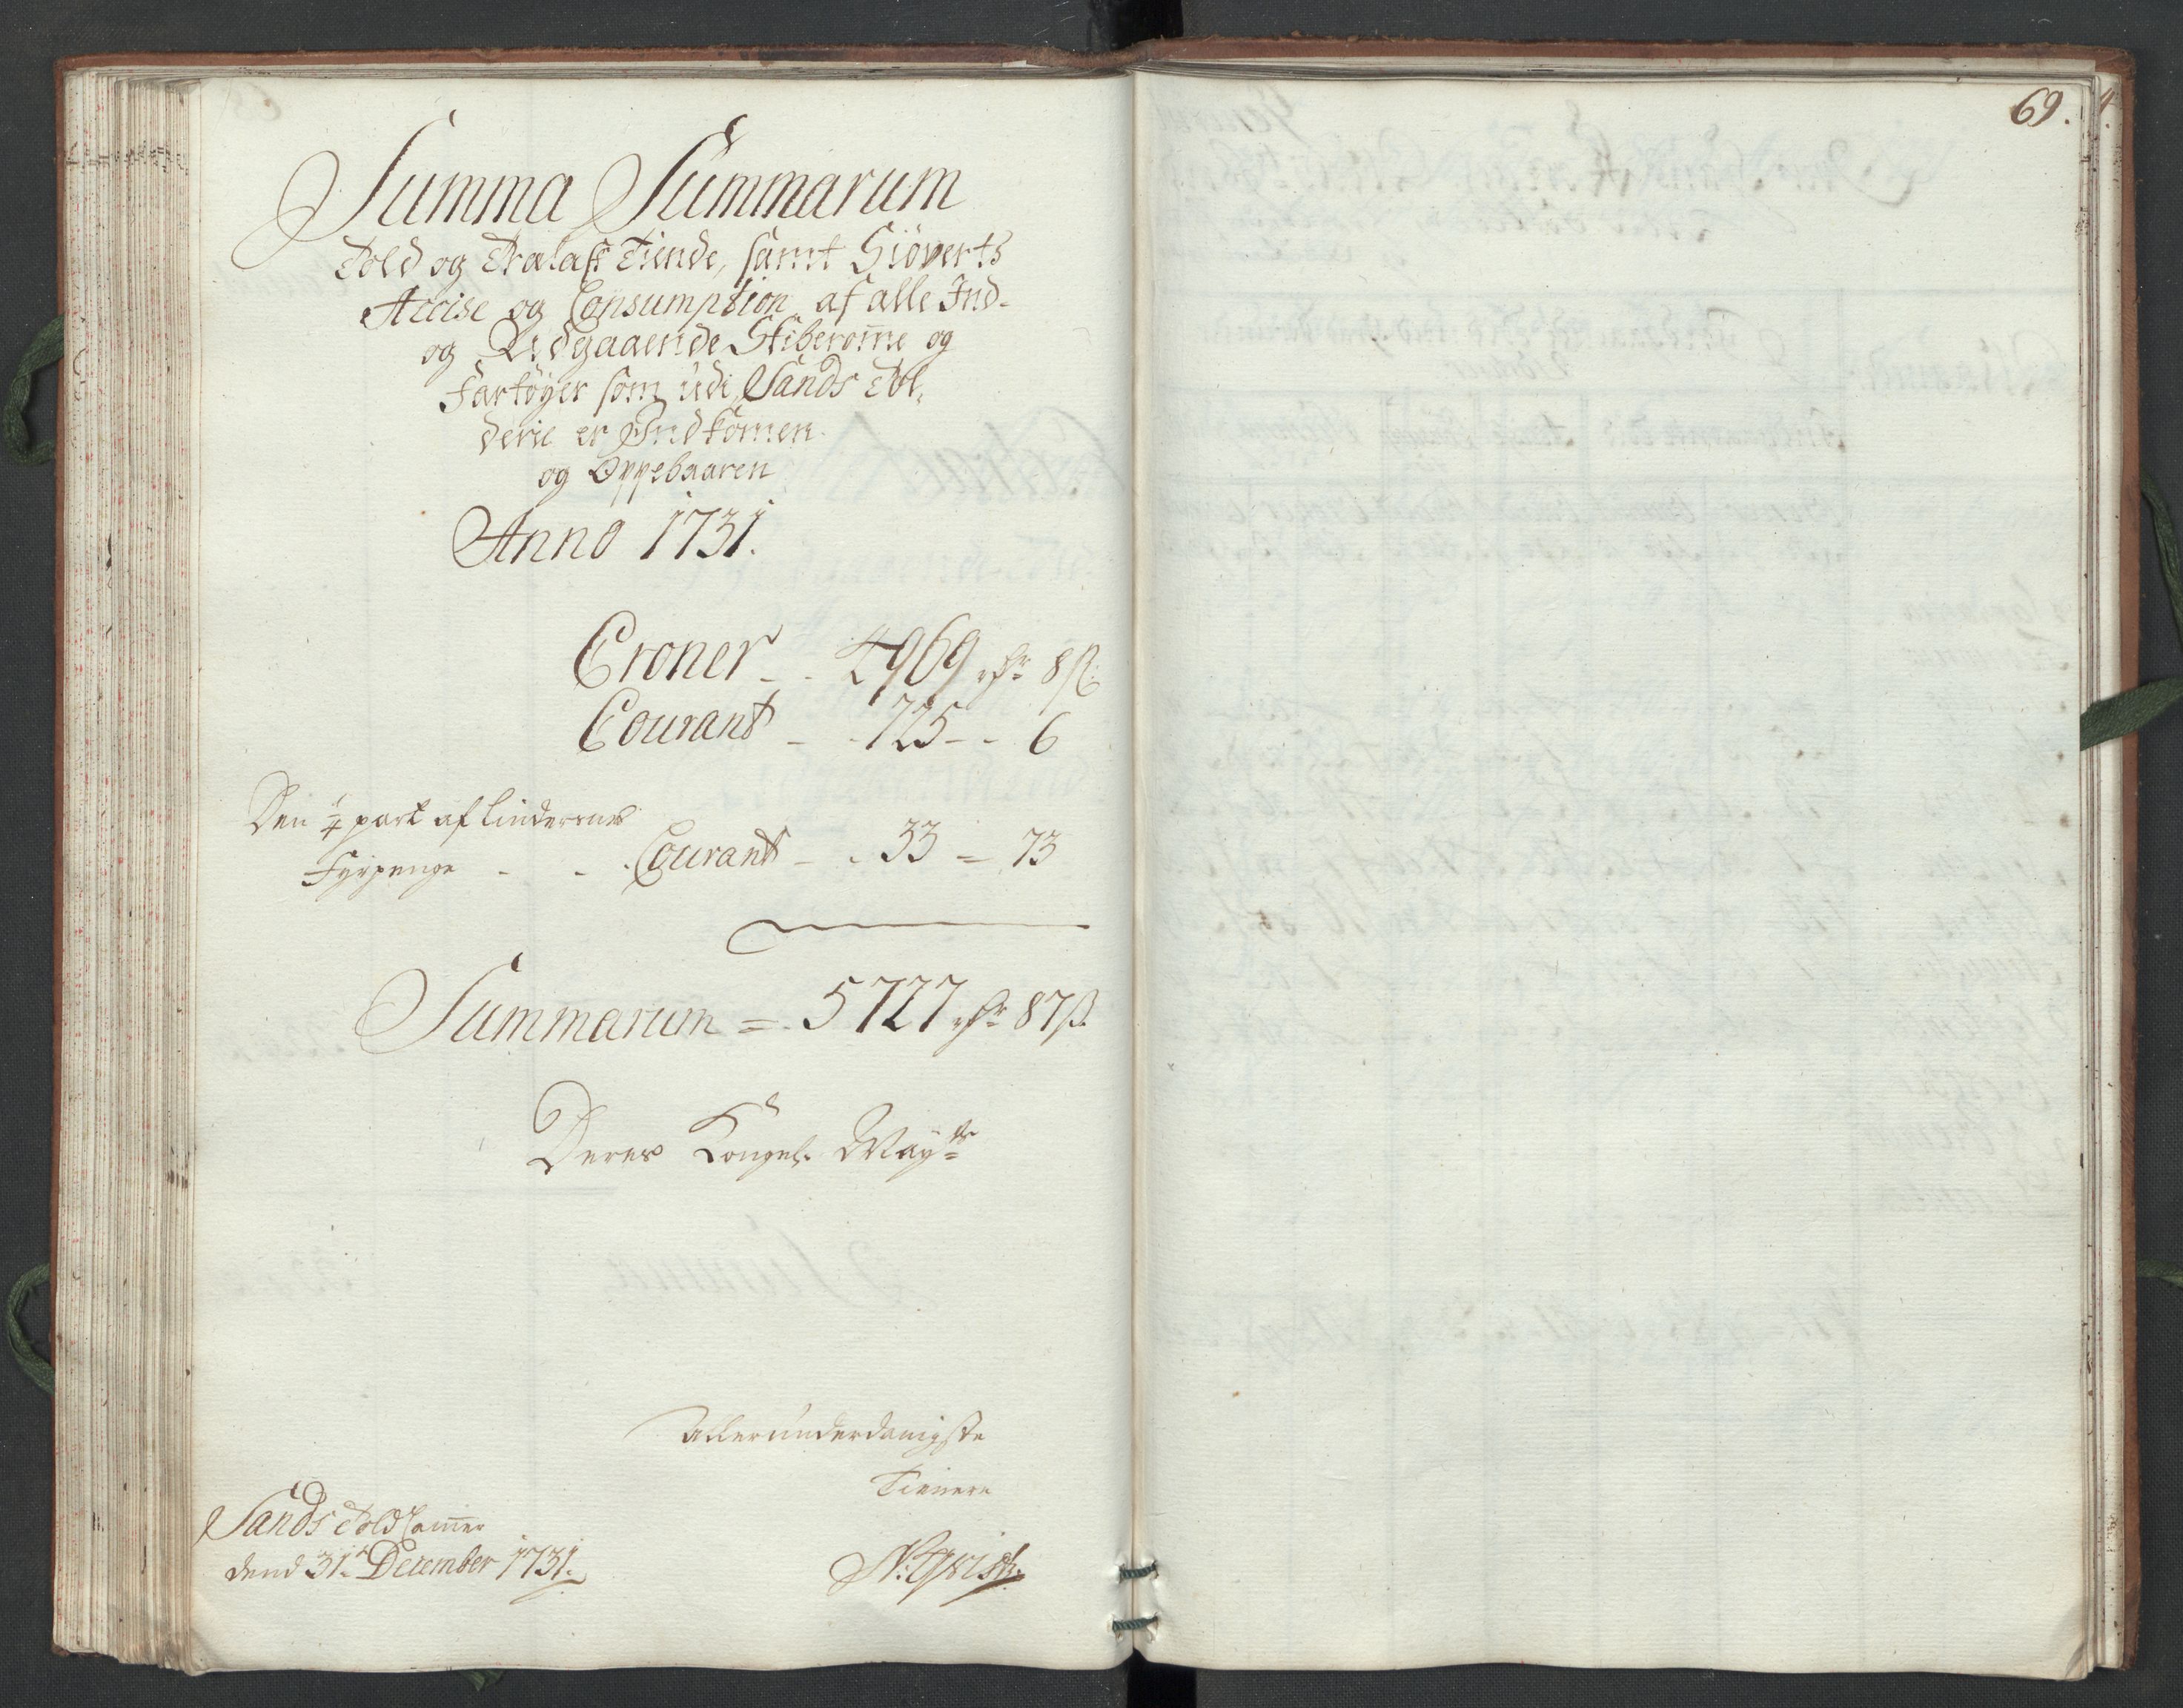 69.
Summa Summarum
Told og Tralast Tiende, samt Siöverts
Accise og Consumption af alle Ind-
og Udgaaende Skiberomme og
Fartöyer som udi Sands Tol,
derie er Indkomen
og Oppebaaren
Anno 1731.
Croner - - 4969 rdr 8 ß:
Courant - - 725 - - 6
Den 1/4 part af Lindernes
Fyrpenge - - . Courant - . 33 = 73
Summarum = . 5727 rdr 87 ß.
Deres Kongel. Mayts
Allerunderdanigste
Tienere
Sands Told Camer
dend 31. December 1731.